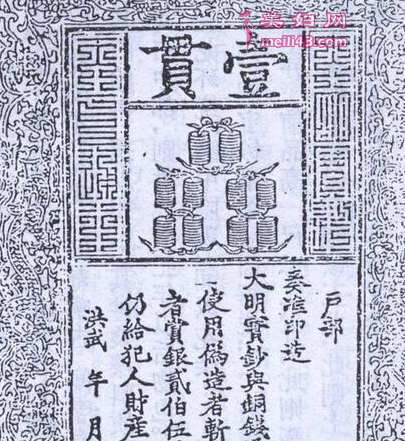 meili43.com
壹貫
戶部
奏准印造
大明寶鈔與銅錢
使用偽造者斬
者賞銀貳伯伍
仍給犯人財產
洪武 年 月